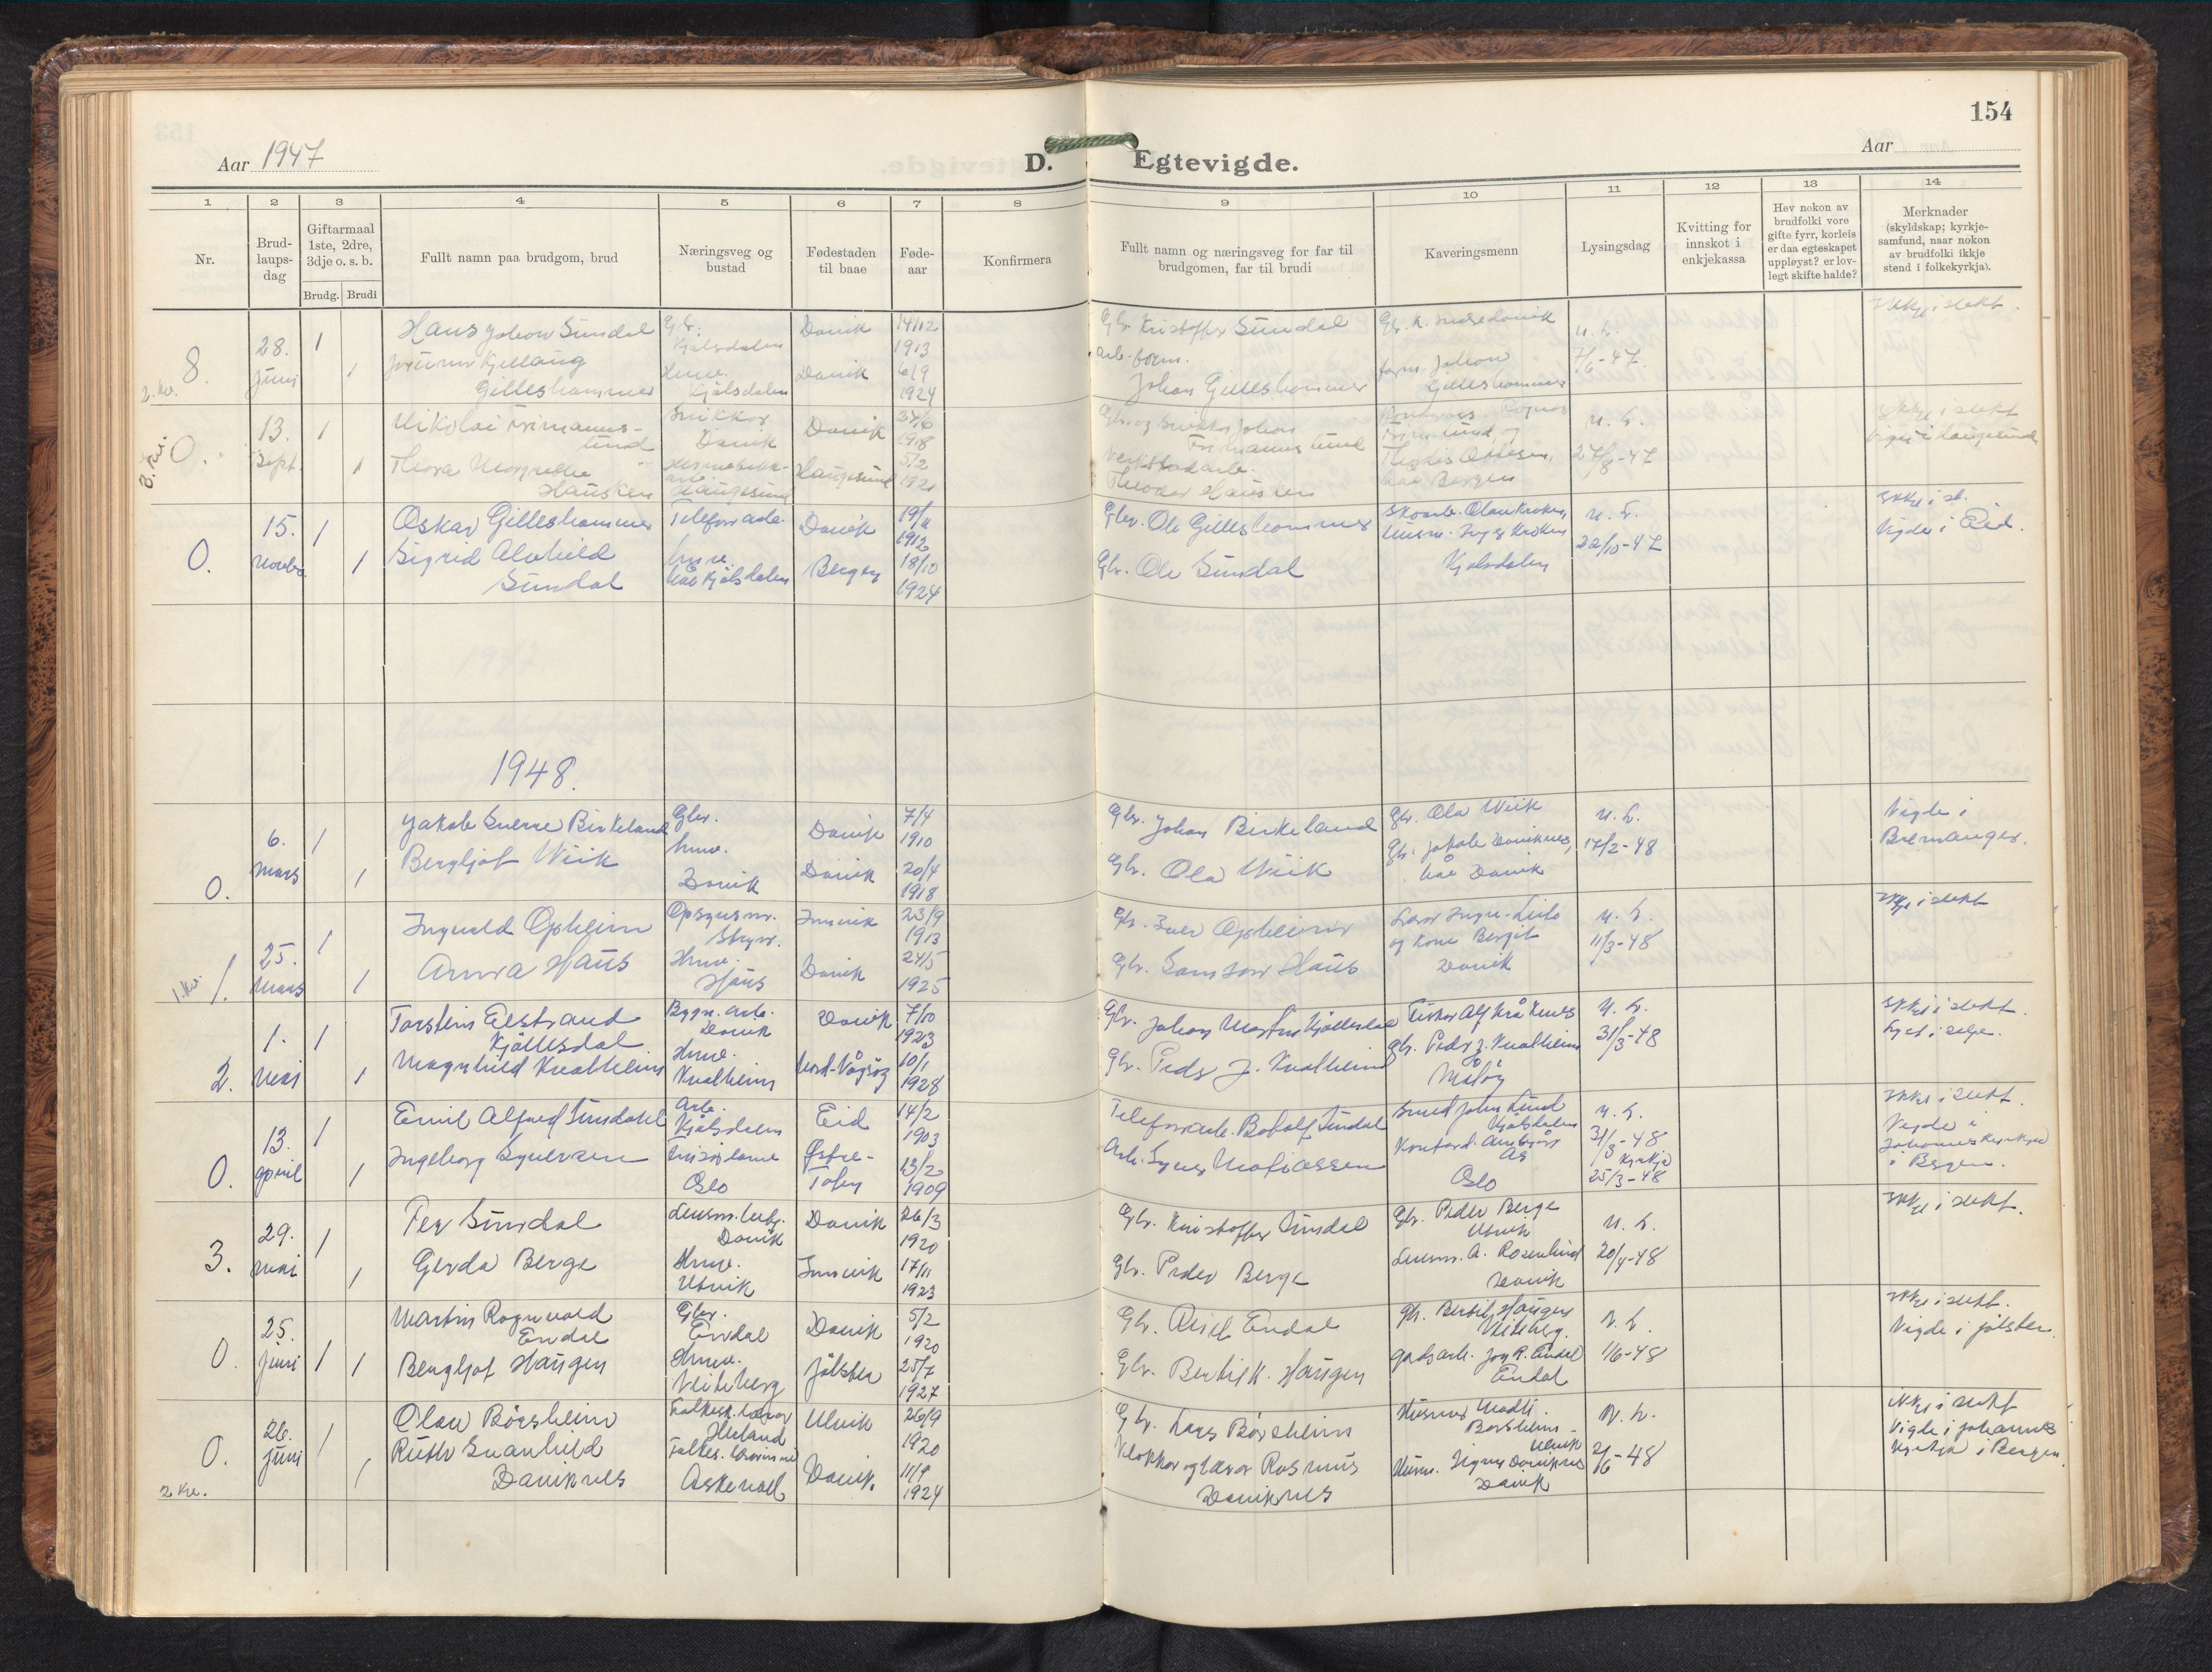 154
Aar 1947
D. Egtevigde.
Aar
1 2 3 4 5 6 7 8 9 10 11 12 13 14
Nr.
Brud-
laups-
dag
Giftarmaal
1ste, 2dre,
3dje o. s. b.
Brudg. Brudi
Fullt namn paa brudgom, brud
Næringsveg og
bustad
Fødestaden
til baae
Føde-
aar
Konfirmera
Fullt namn og næringsveg for far til
brudgomen, far til brudi
Kaveringsmenn
Lysingsdag
Kvitting for
innskot i
enkjekassa
Hev nokon av
brudfolki vore
gifte fyrr, korleis
er daa egteskapet
uppløyst? er lov-
legt skifte halde?
Merknader
(skyldskap; kyrkje-
samfund, naar nokon
av brudfolki ikkje
stend i folkekyrkja).
8. 28. juni 1 1
2. kv.
Hans Johan Sundal
Kjellaug
Gilleshammer
Gbr.
Kjølsdalen
Hmv.
Kjølsdalen
Davik
Davik
14/12
1913
6/9
1924
Gbr. Kristoffer Sundal
arb. form.
Johan Gilleshammer
form. Johan
Gilleshammer
u. L.
7/6-47.
Ikkje i slekt.
0. 13. Sept. 1 1
Nikolai Frimanns-
lund
Thora Margrethe
Hausken
Snikkar
Davik
Haugesund
Davik
Haugesund
1918
5/2
1921
Gbr. og snikkar Johan
Frimannslund
Verkstadarb.
Theodor Hausken
Bergen
u. L.
27/8-47
Ikkje i slekt
Vigde i Haugesund
0. 15. novbr. 1 1
Oskar Gilleshammer
Sigrid Alvhild
Sundal
Telefonarb.
hmv.
båe Kjølsdalen
Davik
Bergen
19/11
1912
18/10
1924
Gbr. Ole Gilleshammer
Gbr. Ole Sundal
Skoarb. Olav Kroken,
Husm. Inga Kroken
Kjølsdalen
u. L.
22/10-47
Ikkje i sl.
Vigde i Eid.
1948.
0. 6. mars 1 1
Jakob Sverre Birkeland
Bergljot Wiik
Gbr.
hmv.
Davik
Davik
Davik
7/4
1910
20/4
1918
Gbr. Johan Birkeland
Gbr. Ola Wiik
Gbr. Ola Wiik
Gbr. Jakob Daviknes,
båe Davik
u. L.
17/2-48
Vigde i
Bremanger.
1. 25. mars 1 1
1. kv.
Ingvald Opheim
Anna Haus
Opsynsm.
Stryn.
Hmv.
Haus
Innvik
Davik
23/9
1913
24/5
1925
Gbr. Iver Opheim
Gbr. Samson Haus
og kone Bergit
Davik
u. L.
11/3-48
Ikkje i slekt
2. 1. mai 1 1
Torstein Elstrand
Kjøllesdal
Magnhild Kvalheim
Bygn. arb.
Davik
Hmv.
Kvalheim
Davik
Nord-Vågsøy
7/10
1923
10/1
1928
Gbr. Johan Martin Kjøllesdal
Gbr. Peder J. Kvalheim
Fiskar Alf Kråkenes
Gbr. Peder J. Kvalheim
Måløy
u. L.
31/3-48
Ikkje i slekt.
Lyst i Selje.
0. 13. april 1 1
Emil Alfred Sundahl
Ingeborg Syversen
Arb.
Kjølsdalen
Frisørdame
Oslo
Eid
Østre-
Toten
14/2
1903
13/2
1909
Telefonarb. Botolf Sundal
Arb. Syver Mathiassen
Smed John Lund
Kjølsdalen
Oslo
u. L.
31/3-48
Kyrkja
25/3-48
Ikkje i slekt.
Vigde i
Johanneskyrkja
i Bergen.
3. 29. mai 1 1
Per Sundal
Gerda Berge
Lensm. betj.
Davik
Hmv.
Utvik
Davik
Innvik
26/3
1920
17/11
1923
Gbr. Kristoffer Sundal
Gbr. Peder Berge
Gbr. Peder Berge
Utvik
Lensm. A. Rosenlund
Davik
u. L.
20/4-48
Ikkje i slekt.
0. 25. juni 1 1
Martin Rognvald
Endal
Bergljot Haugen
Gbr.
Endal
Hmv.
Veiteberg
Davik
Jølster
5/2
1920
25/7
1927
Gbr. Aksel Endal
Gbr. Bertil K. Haugen
Gbr. Bertil Haugen
Veiteberg.
Gardsarb. Joh R. Endal
Endal
u. L.
1/6-48
Ikkje i slekt.
Vigde i Jølster
0. 26. juni 1 1
2 kv.
Olav Børsheim
Ruth Svanhild
Daviknes
Folkesk. lærar
Folkesk. lærarinne
Askevoll
Ulvik
Davik.
26/9
1920
11/9
1924
Gbr. Lars Børsheim
Klokkar og lærar Rasmus
Daviknes
Husmor Madli
Børsheim -
Ulvik
Husm. Signe Daviknes
Davik
u. L.
2/6-48
Ikkje i slekt
Vigde i Johannes
kyrkja i Bergen.